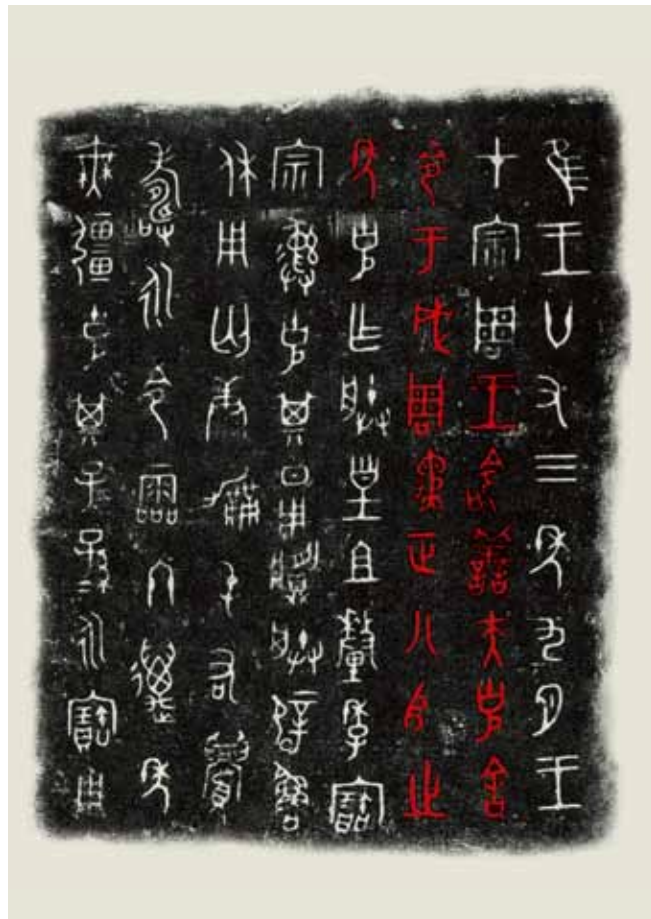 隹王廿又三年九月王
才宗周王命善夫克舍
令于成周遹正八𠂤之
年克乍朕皇且釐季寶
宗彝克其日用𩰬朕辟魯
休用匄康勵屯右眉
壽永令霝冬邁年
無疆克其子子孫孫永寶用